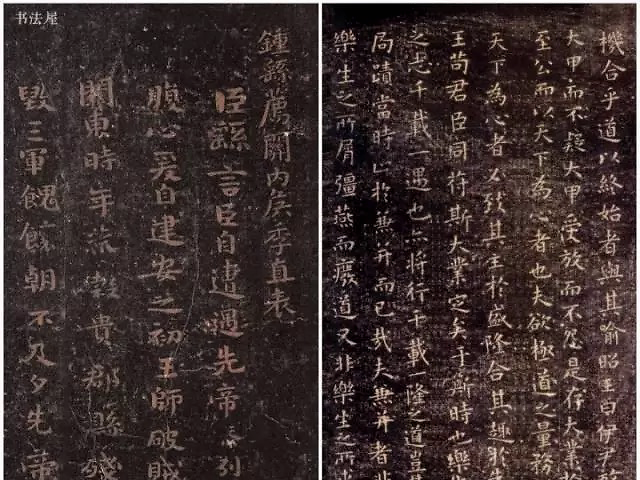 书法屋
鍾繇薦關內侯季直表
臣繇言臣自遭遇先帝忝列
腹心爰自建安之初王師破賊
關東時年荒穀貴郡縣殘
毀三軍餽饟朝不及夕先帝
機合乎道以終始者與其喻昭王曰伊尹放
大甲而不疑大甲受放而不怨是存大業於
至公而以天下為心者也夫欲極道之量務
天下為心者必致其主於盛隆合其趣於先
王苟君臣同符斯大業定矣于斯時也樂生
之志千載一遇也亦將行千載隆之道豈其
局蹟當時止於兼并而已哉夫兼并者非
樂生之所屑彊燕而廢道又非樂生之所求